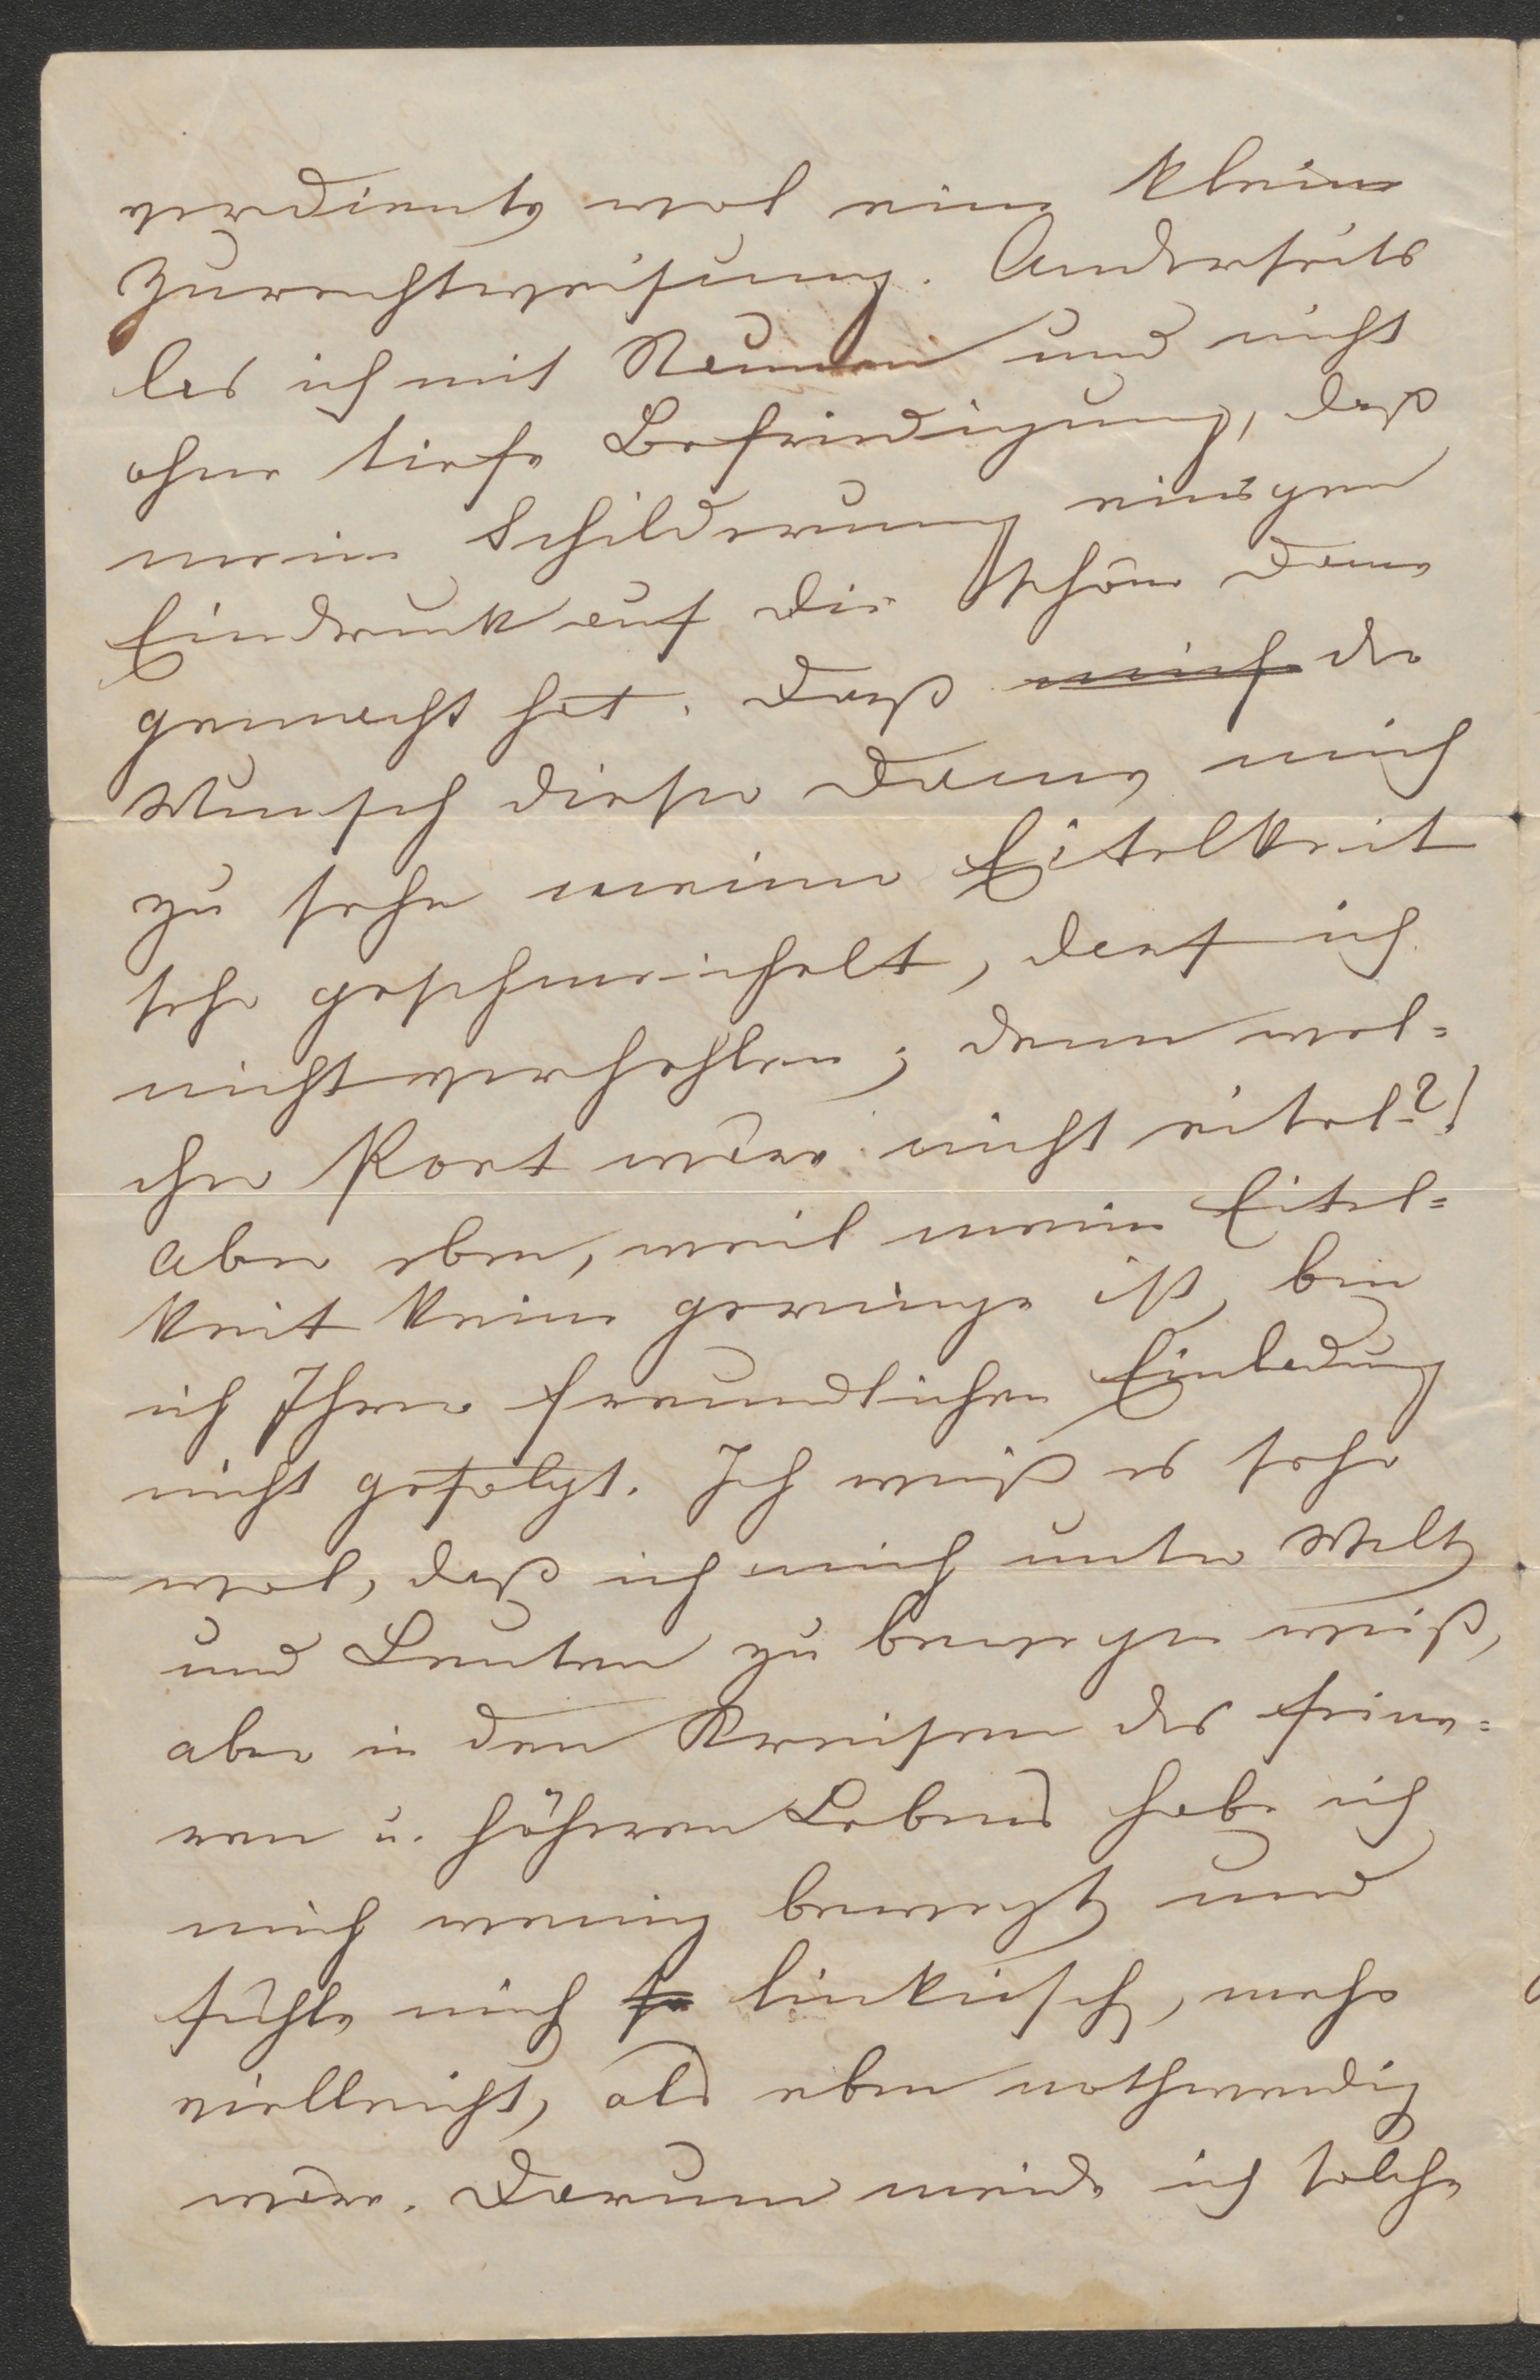 verdiente wol eine kleine
Zurechtweisung. Anderseits
las ich mit Staunen und nicht
ohne tiefe Befriedigung, daß
meine Schilderung einigen
Eindruck auf die schöne Dame
gemacht hat. Daß mich der
Wunsch dieser Dame mich
zu sehen meiner Eitelkeit
sehr geschmeichelt, darf ich
nicht verhehlen; denn wel=
cher Poet wäre nicht eitel?!
Aber eben, weil meine Eitel=
keit keine geringe ist, bin
ich Ihrer freundlichen Einladung
nicht gefolgt. Ich weiß es sehr
wol, daß ich mich unter Welt
und Leuten zu bewegen weiß,
aber in den Kreisen des feine=
ren u. höheren Lebens habe ich
mich wenig bewegt und
fühle mich so linkisch, mehr
vielleicht, als eben nothwendig
wäre. Darum meide ich solche